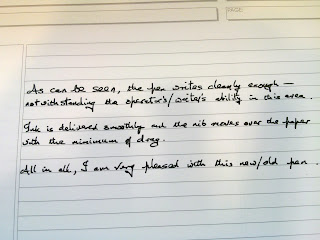 As can be seen, the pen writes clearly enough —
notwithstanding the operator's/writer's ability in this area.
Ink is delivered smoothly and the nib moves over the paper
with the minimum of drag.
All in all, I am very pleased with this new/old pen.